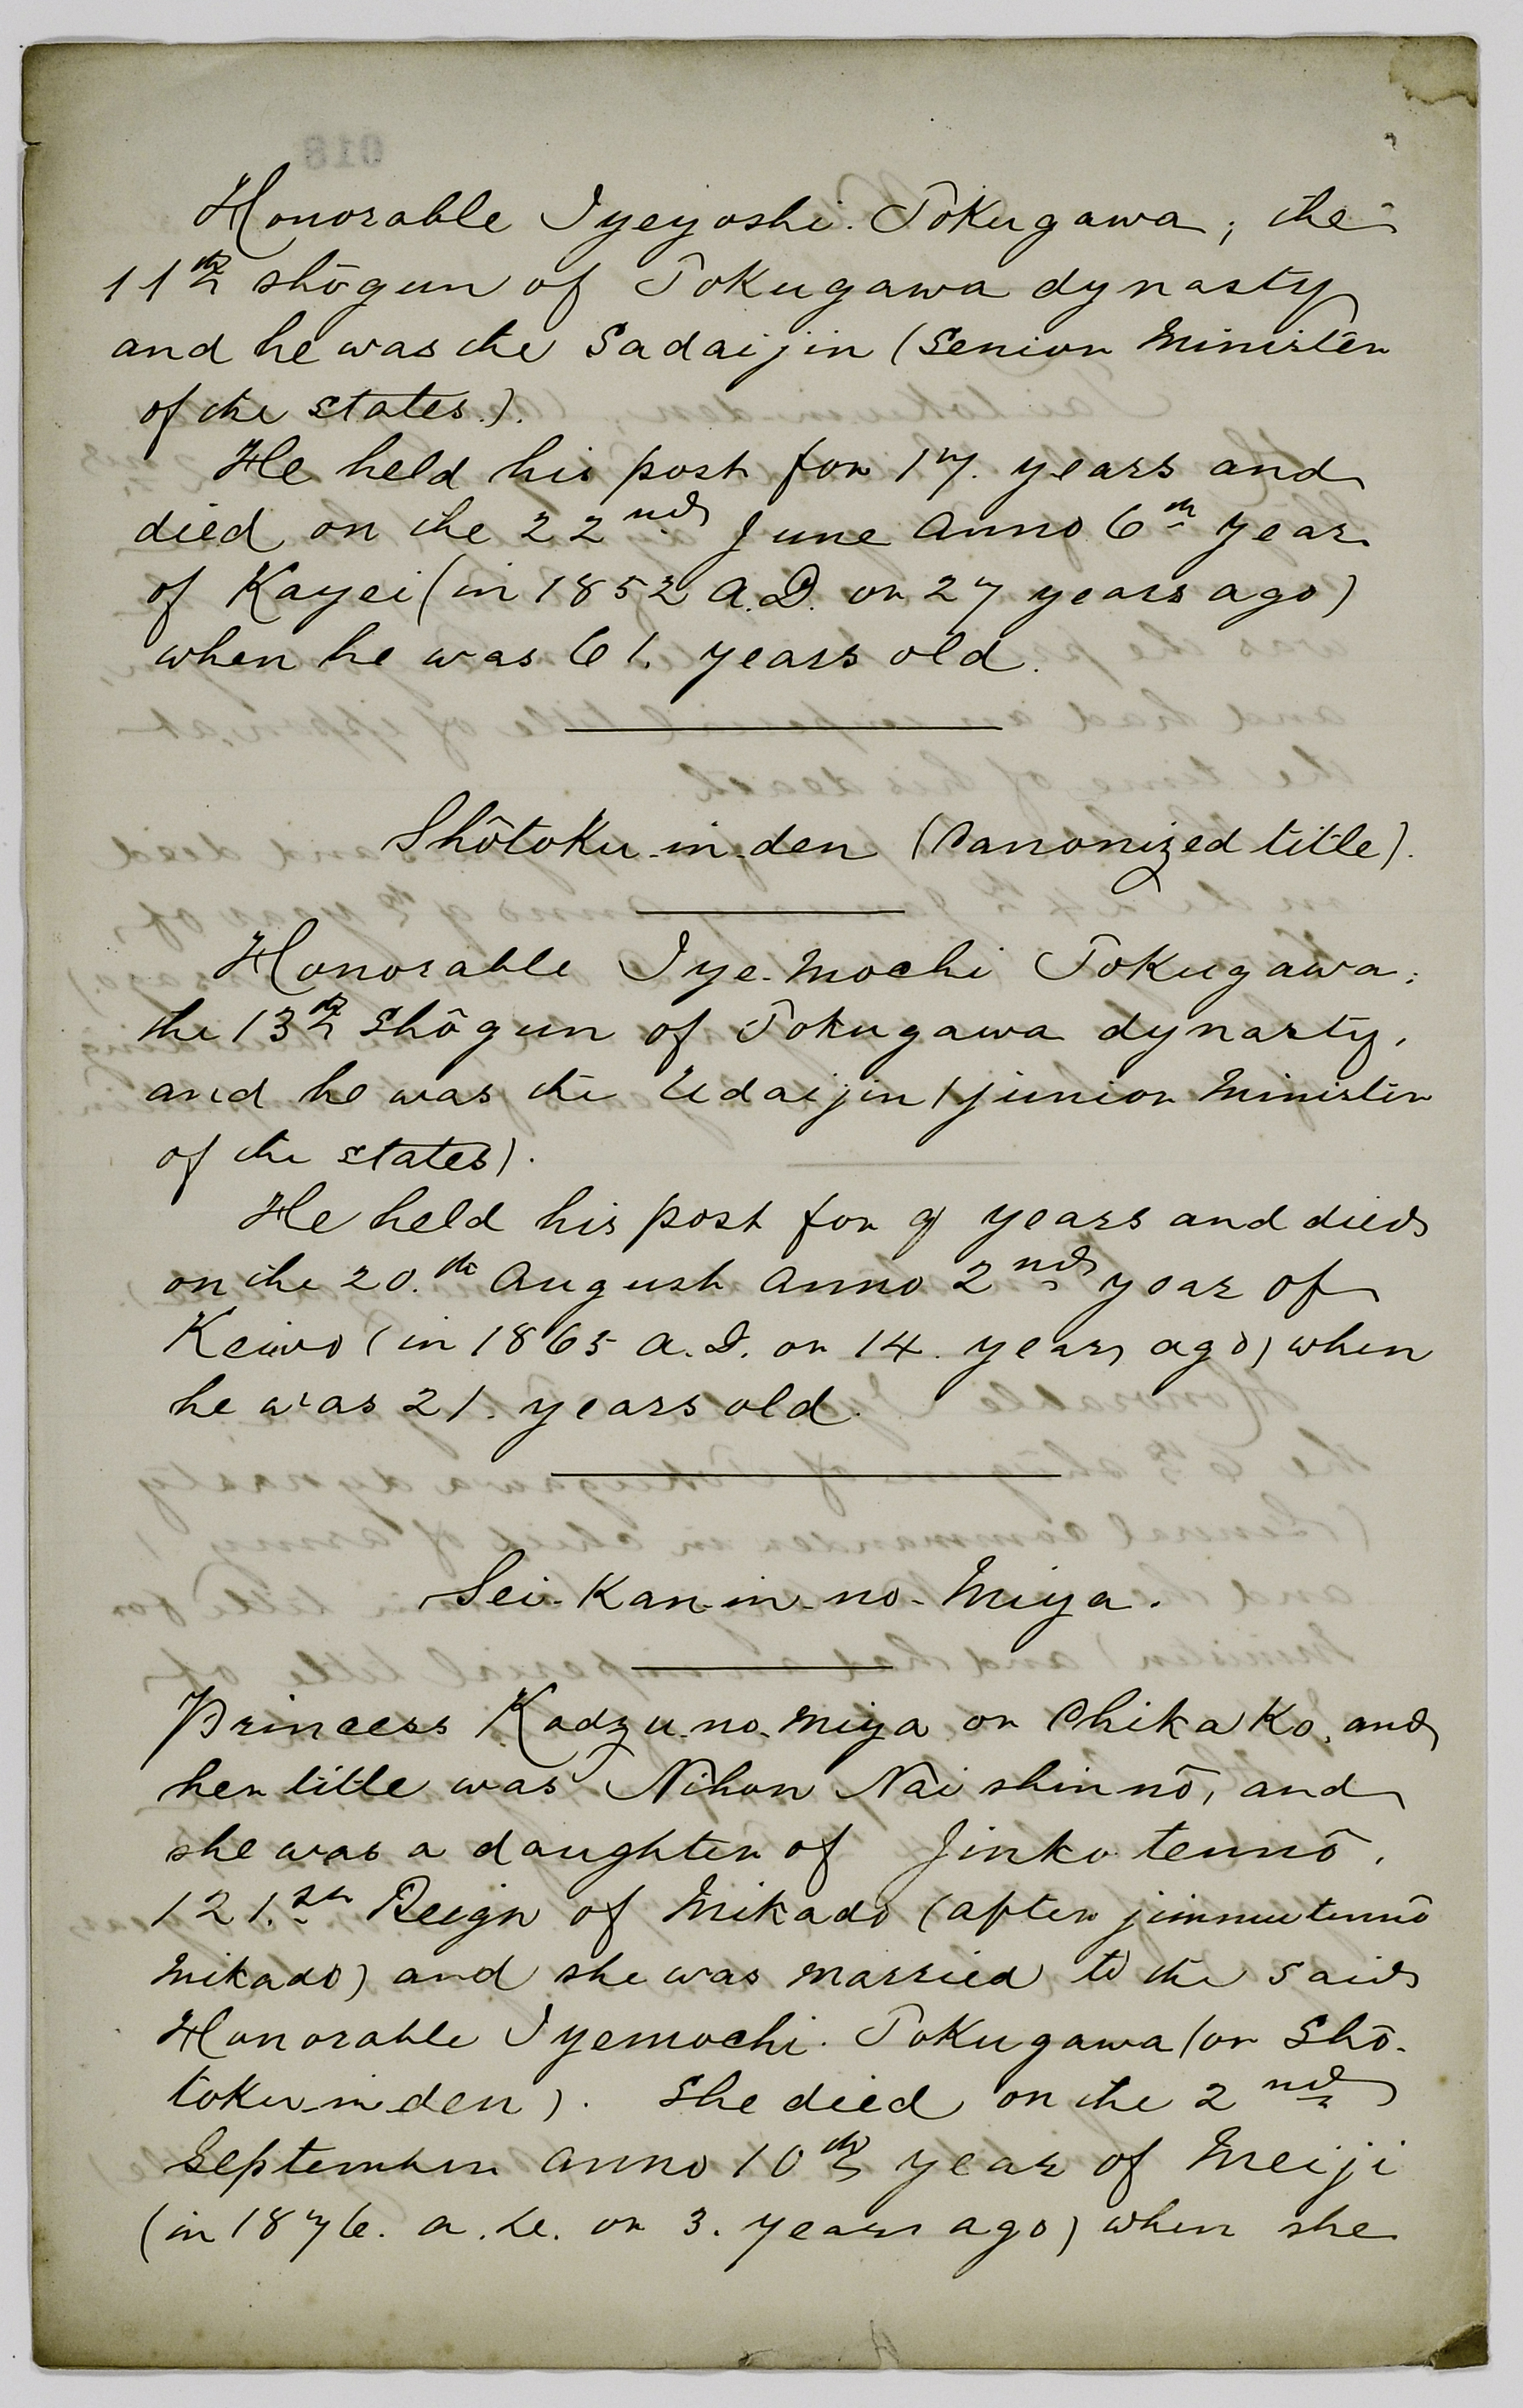 Honorable Iyeyoshi. Tokugawa, the
11th shōgun of Tokugawa dynasty
and he was the Sadaijin (Senior Minister
of the states.).
He held his post for 17. years and
died on the 22nd June Anno 6th year
of Kayei (in 1852 A.D. or 27 years ago)
when he was 61. years old.
Shôtoku-in-den (Canonized title).
Honorable Iye-mochi Tokugawa.
the 13th Shôgun of Tokugawa dynasty,
and he was the Udaijin (junior Minister
of the states).
He held his post for 9 years and died
on the 20.th August Anno 2nd year of
Keiwo (in 1865 A.D. or 14. years ago) when
he was 21. years old.
Sei-Kan-in-no-Miya.
Princess Kadzu-no-miya or Chikako, and
her title was Nihon Naishinnô, and
she was a daughter of Jinko tennô,
121.st Reign of Mikado (after jimmu tennô
Mikado) and she was married to the said
Honorable Iyemochi. Tokugawa (or Shô-
toku-in-den). She died on the 2nd
September Anno 10th year of Meiji
(in 1876. a.d. or 3. years ago) when she